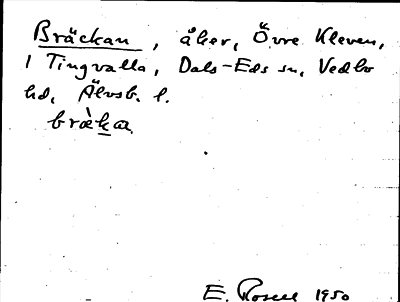 Bräckan, åker, Övre Kleven,
1 Tingvalla, Dals-Eds sn, Vedbo
hd, Älvsb. l.
bràkan
E. Rosell 1950